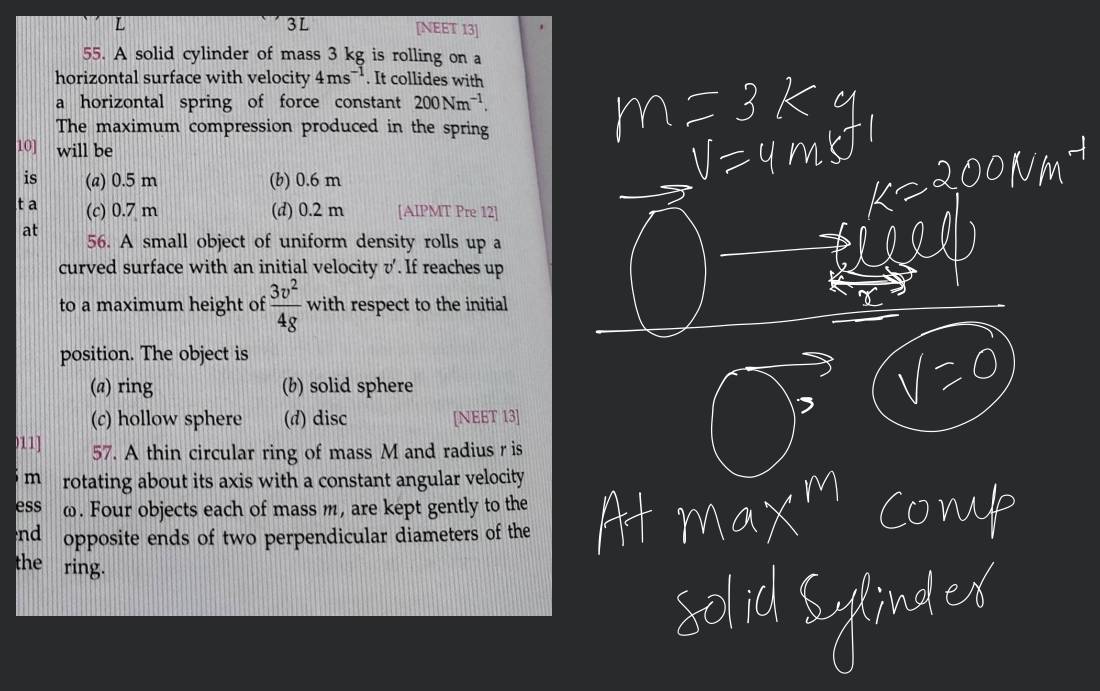 L 3L [NEET 13]
55. A solid cylinder of mass 3 kg is rolling on a
horizontal surface with velocity 4 ms⁻¹. It collides with
a horizontal spring of force constant 200 Nm⁻¹.
The maximum compression produced in the spring
will be
(a) 0.5 m (b) 0.6 m
(c) 0.7 m (d) 0.2 m [AIPMT Pre 12]
56. A small object of uniform density rolls up a
curved surface with an initial velocity v'. If reaches up
to a maximum height of 3v²/4g with respect to the initial
position. The object is
(a) ring (b) solid sphere
(c) hollow sphere (d) disc [NEET 13]
57. A thin circular ring of mass M and radius r is
rotating about its axis with a constant angular velocity
ω. Four objects each of mass m, are kept gently to the
opposite ends of two perpendicular diameters of the
ring.
10]
is
t a
at
011]
m
ess
end
the
m = 3 Kg
V = 4 ms⁻¹
K = 200 Nm⁻¹
x
V = 0
At maxᵐ comp
solid Sylinder